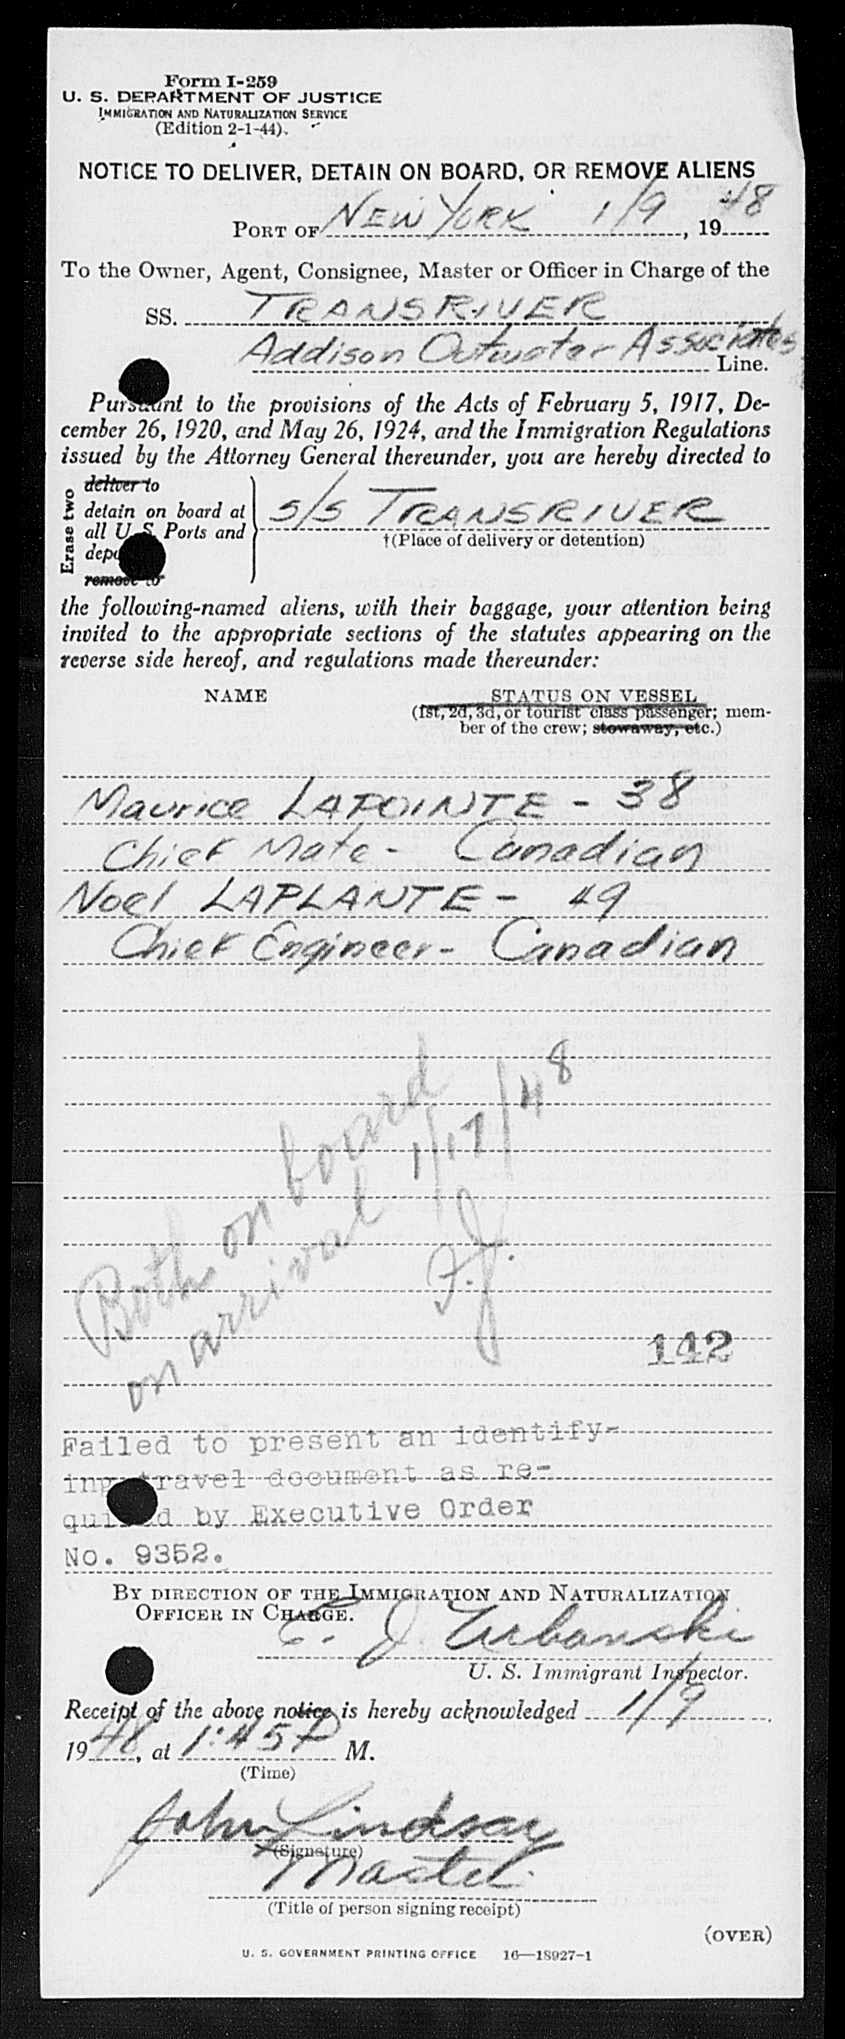 Form I-259
U. S. DEPARTMENT OF JUSTICE
IMMIGRATION AND NATURALIZATION SERVICE
(Edition 2-1-44)
NOTICE TO DELIVER, DETAIN ON BOARD, OR REMOVE ALIENS
PORT OF NEW YORK 1/9, 1948
To the Owner, Agent, Consignee, Master or Officer in Charge of the
SS. TRANSRIVER
Addison Outwater Associates Line.
Pursuant to the provisions of the Acts of February 5, 1917, De-
cember 26, 1920, and May 26, 1924, and the Immigration Regulations
issued by the Attorney General thereunder, you are hereby directed to
Erase two
deliver to
detain on board at
all U. S. Ports and
remove to
S/S TRANSRIVER
†(Place of delivery or detention)
the following-named aliens, with their baggage, your attention being
invited to the appropriate sections of the statutes appearing on the
reverse side hereof, and regulations made thereunder:
NAME STATUS ON VESSEL
(1st, 2d, 3d, or tourist class passenger; mem-
ber of the crew; stowaway, etc.)
Maurice LAPOINTE - 38
Chief Mate - Canadian
Noel LAPLANTE - 49
Chief Engineer - Canadian
Both on board
on arrival 1/17/48
F.J.
142
Failed to present an identify-
ing travel document as re-
quired by Executive Order
No. 9352.
BY DIRECTION OF THE IMMIGRATION AND NATURALIZATION
OFFICER IN CHARGE.
E. J. Urbanski
U. S. Immigrant Inspector.
Receipt of the above notice is hereby acknowledged 1/9,
1948, at 1:45 P M.
(Time)
John Lindsay
(Signature)
Master
(Title of person signing receipt)
(OVER)
U. S. GOVERNMENT PRINTING OFFICE 16—18927-1